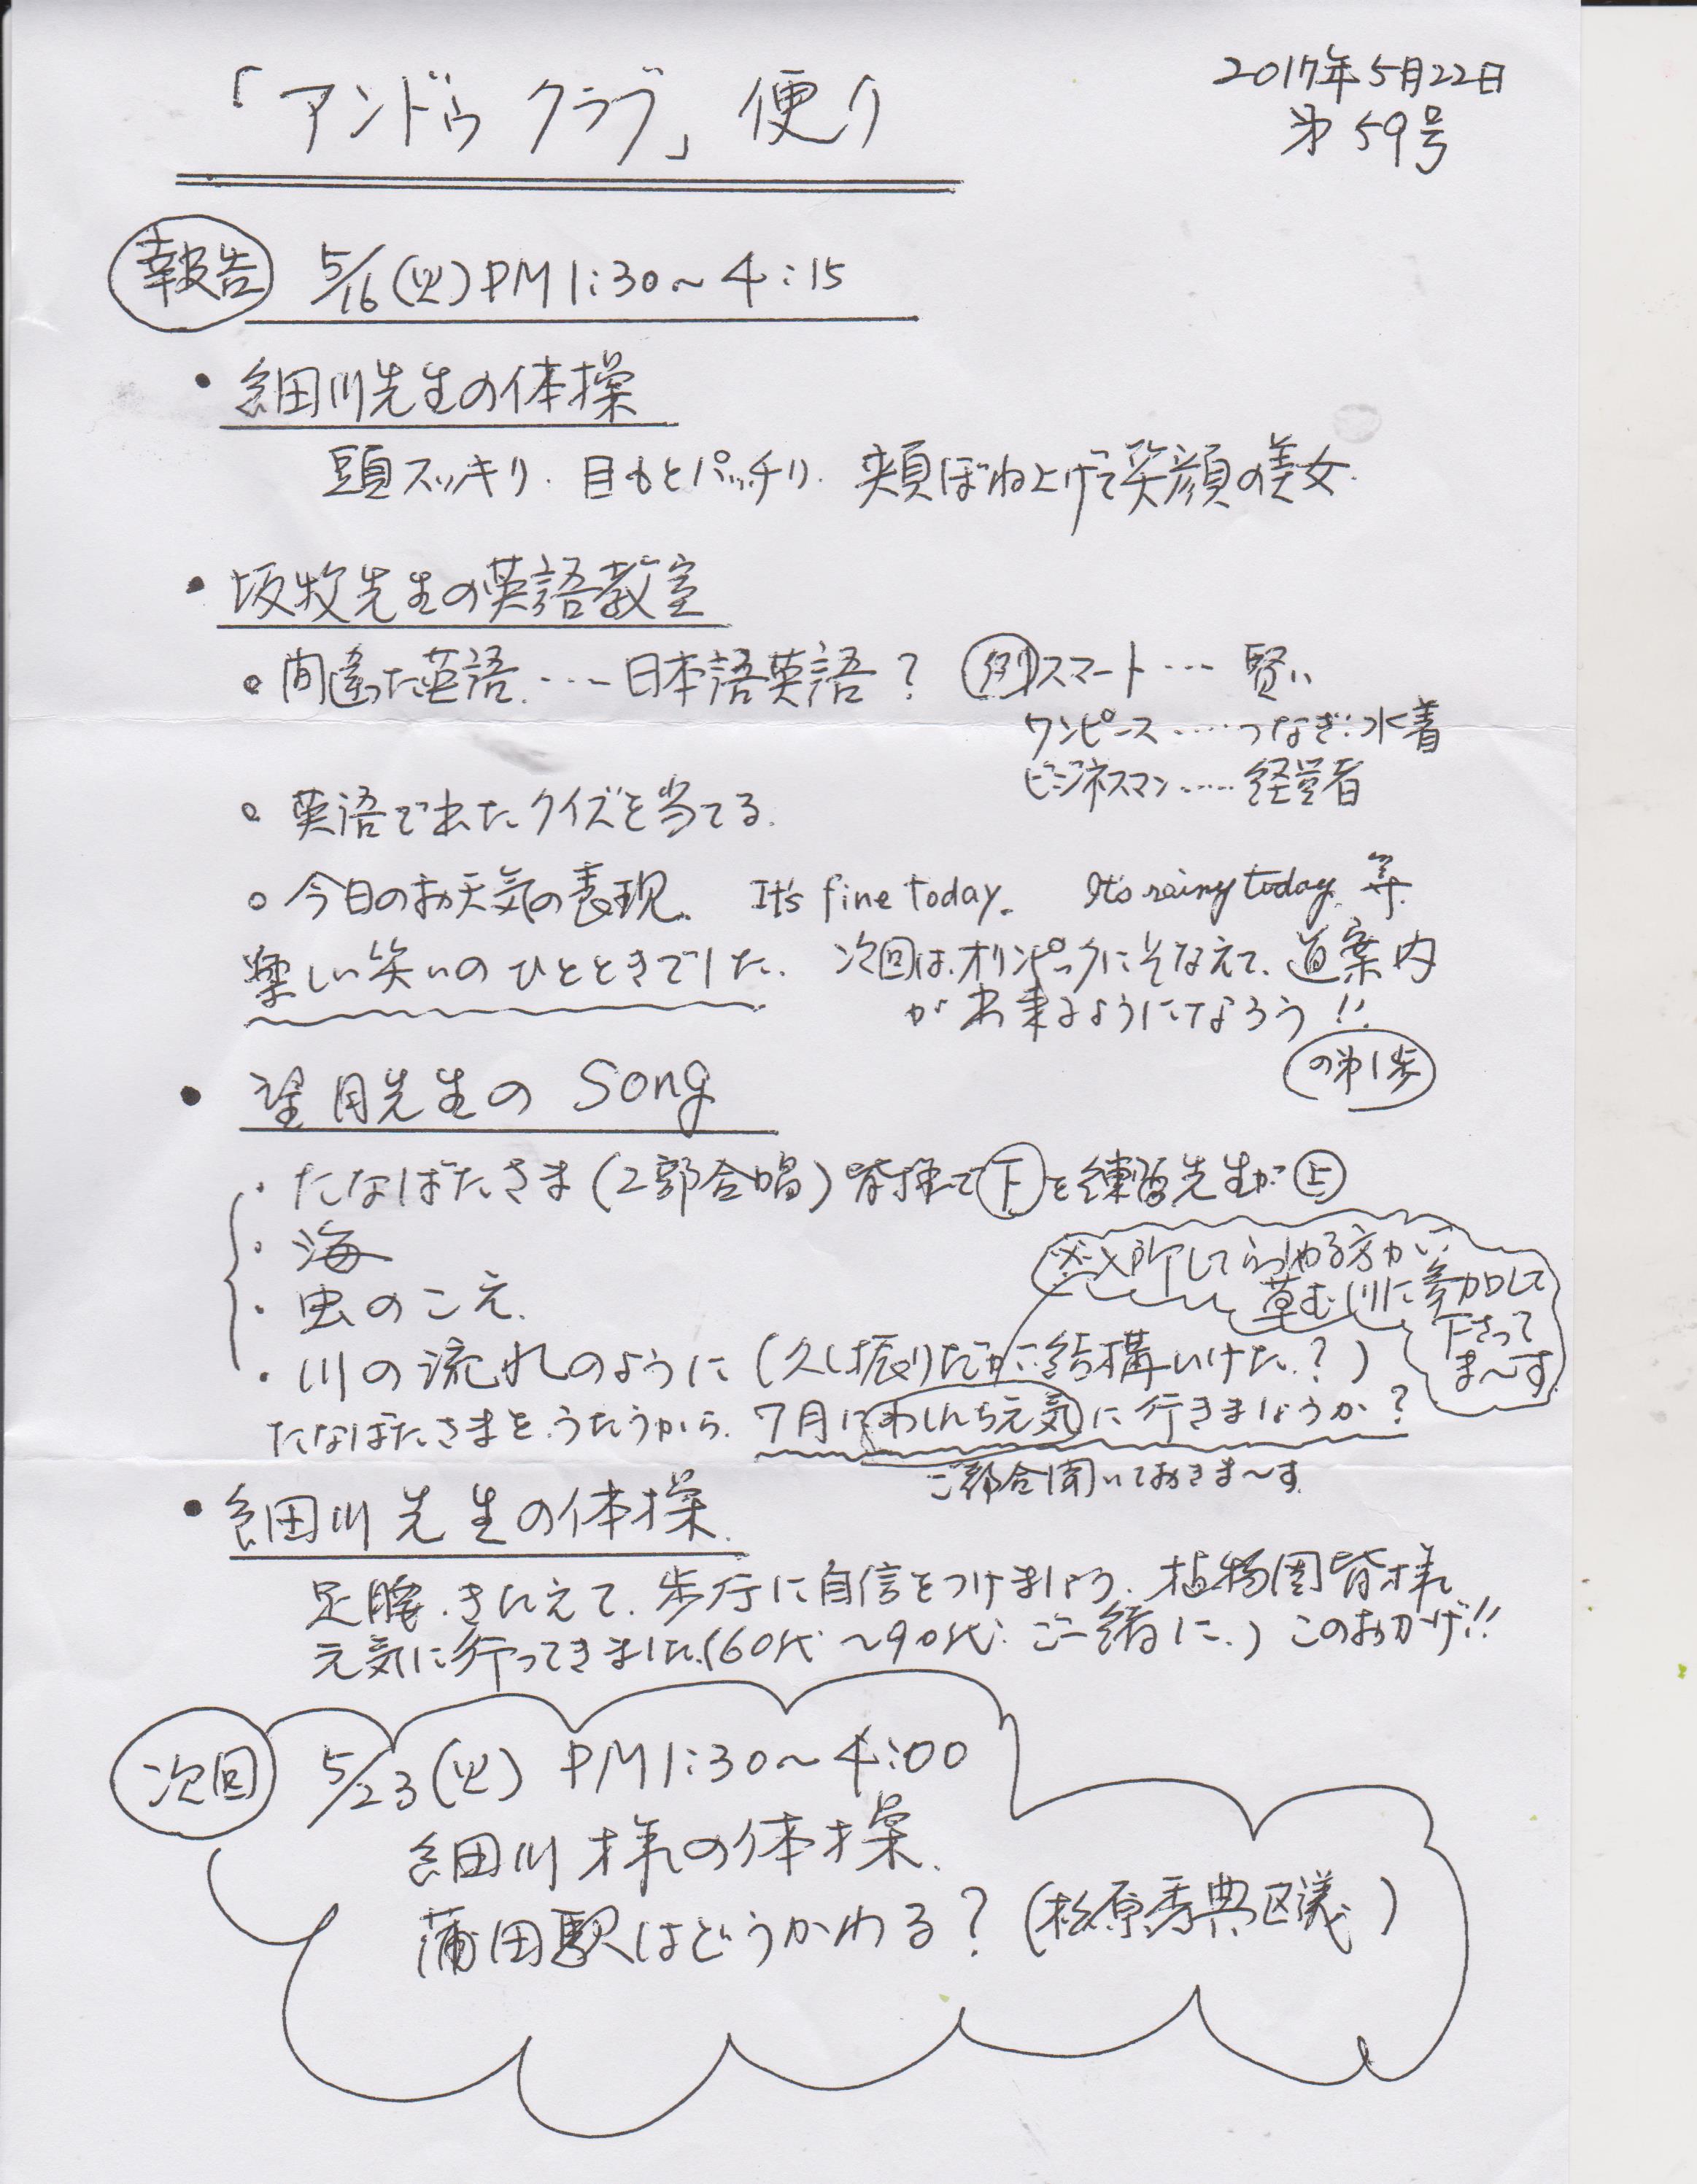 「アンドゥ クラブ」便り
2017年5月22日
第59号
報告 5/16(火)PM1:30～4:15
・細川先生の体操
頭スッキリ. 目もとパッチリ. 頬ぼね上げて笑顔の美女.
・坂牧先生の英語教室
○間違った英語.…日本語英語? 例 スマート… 賢い
ワンピース……つなぎ.水着
ビジネスマン……経営者
○英語で出たクイズを当てる.
○今日のお天気の表現. It's fine today. It's rainy today. 等.
楽しい笑いのひとときでした. 次回は.オリンピックにそなえて、道案内
が出来るようになろう!!
の第1歩
・望月先生の Song
・たなばたさま(2部合唱) 皆様で下を練習先生が上
・海
・虫のこえ.
・川の流れのように(久し振りだが.結構いけた.?)
※入所してらっしゃる方が、
に参加して
下さって
ま～す.
たなばたさまを.うたうから. 7月にわしんち元気に行きましょうか?
ご都合聞いておきま～す.
・細川先生の体操.
足腰.きたえて.歩行に自信をつけましょう. 植物園皆様
元気に行ってきました.(60代～90代.ご一緒に.) このおかげ!!
次回 5/23(火) PM1:30～4:00
細川様の体操.
蒲田駅はどうかわる?(松原秀典区議)